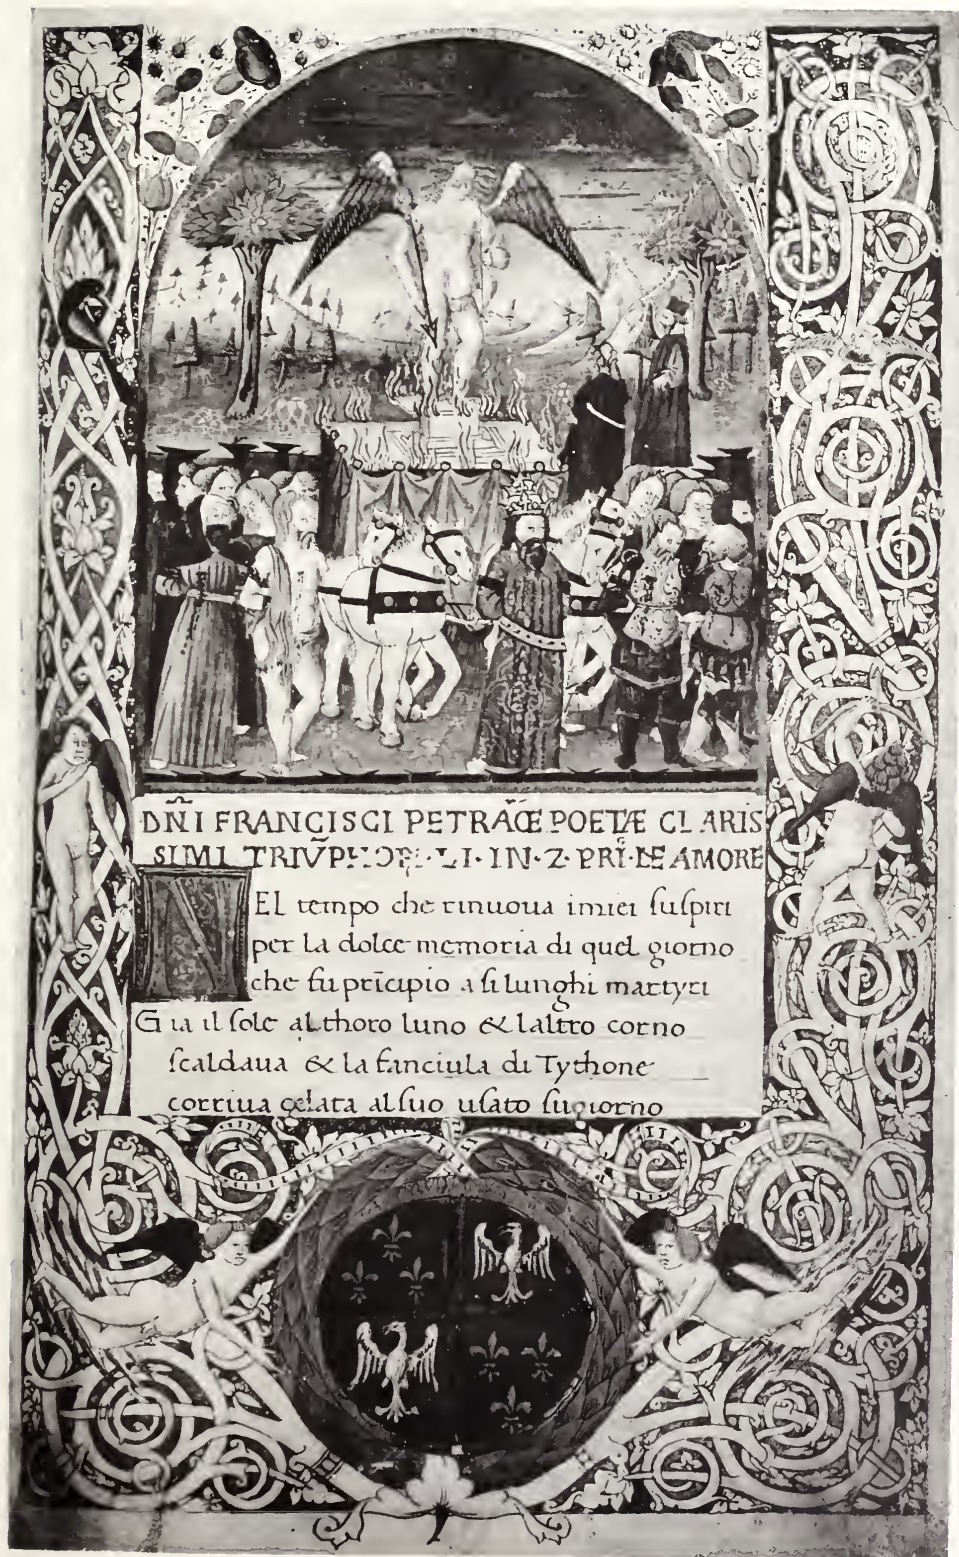 DÑI FRANCISCI PETRARCĒ POETÆ CLARIS
SIMI TRIV̄PHO LI · IN · Z · PRI · DE AMORE
NEL tempo che rinuoua imiei ſuſpiri
per la dolce memoria di quel giorno
che fu prīcipio a ſi lunghi martyri
Gia il ſole al thoro luno & laltro corno
ſcaldaua & la fanciula di Tythone
corriua gelata al ſuo uſato ſugiorno